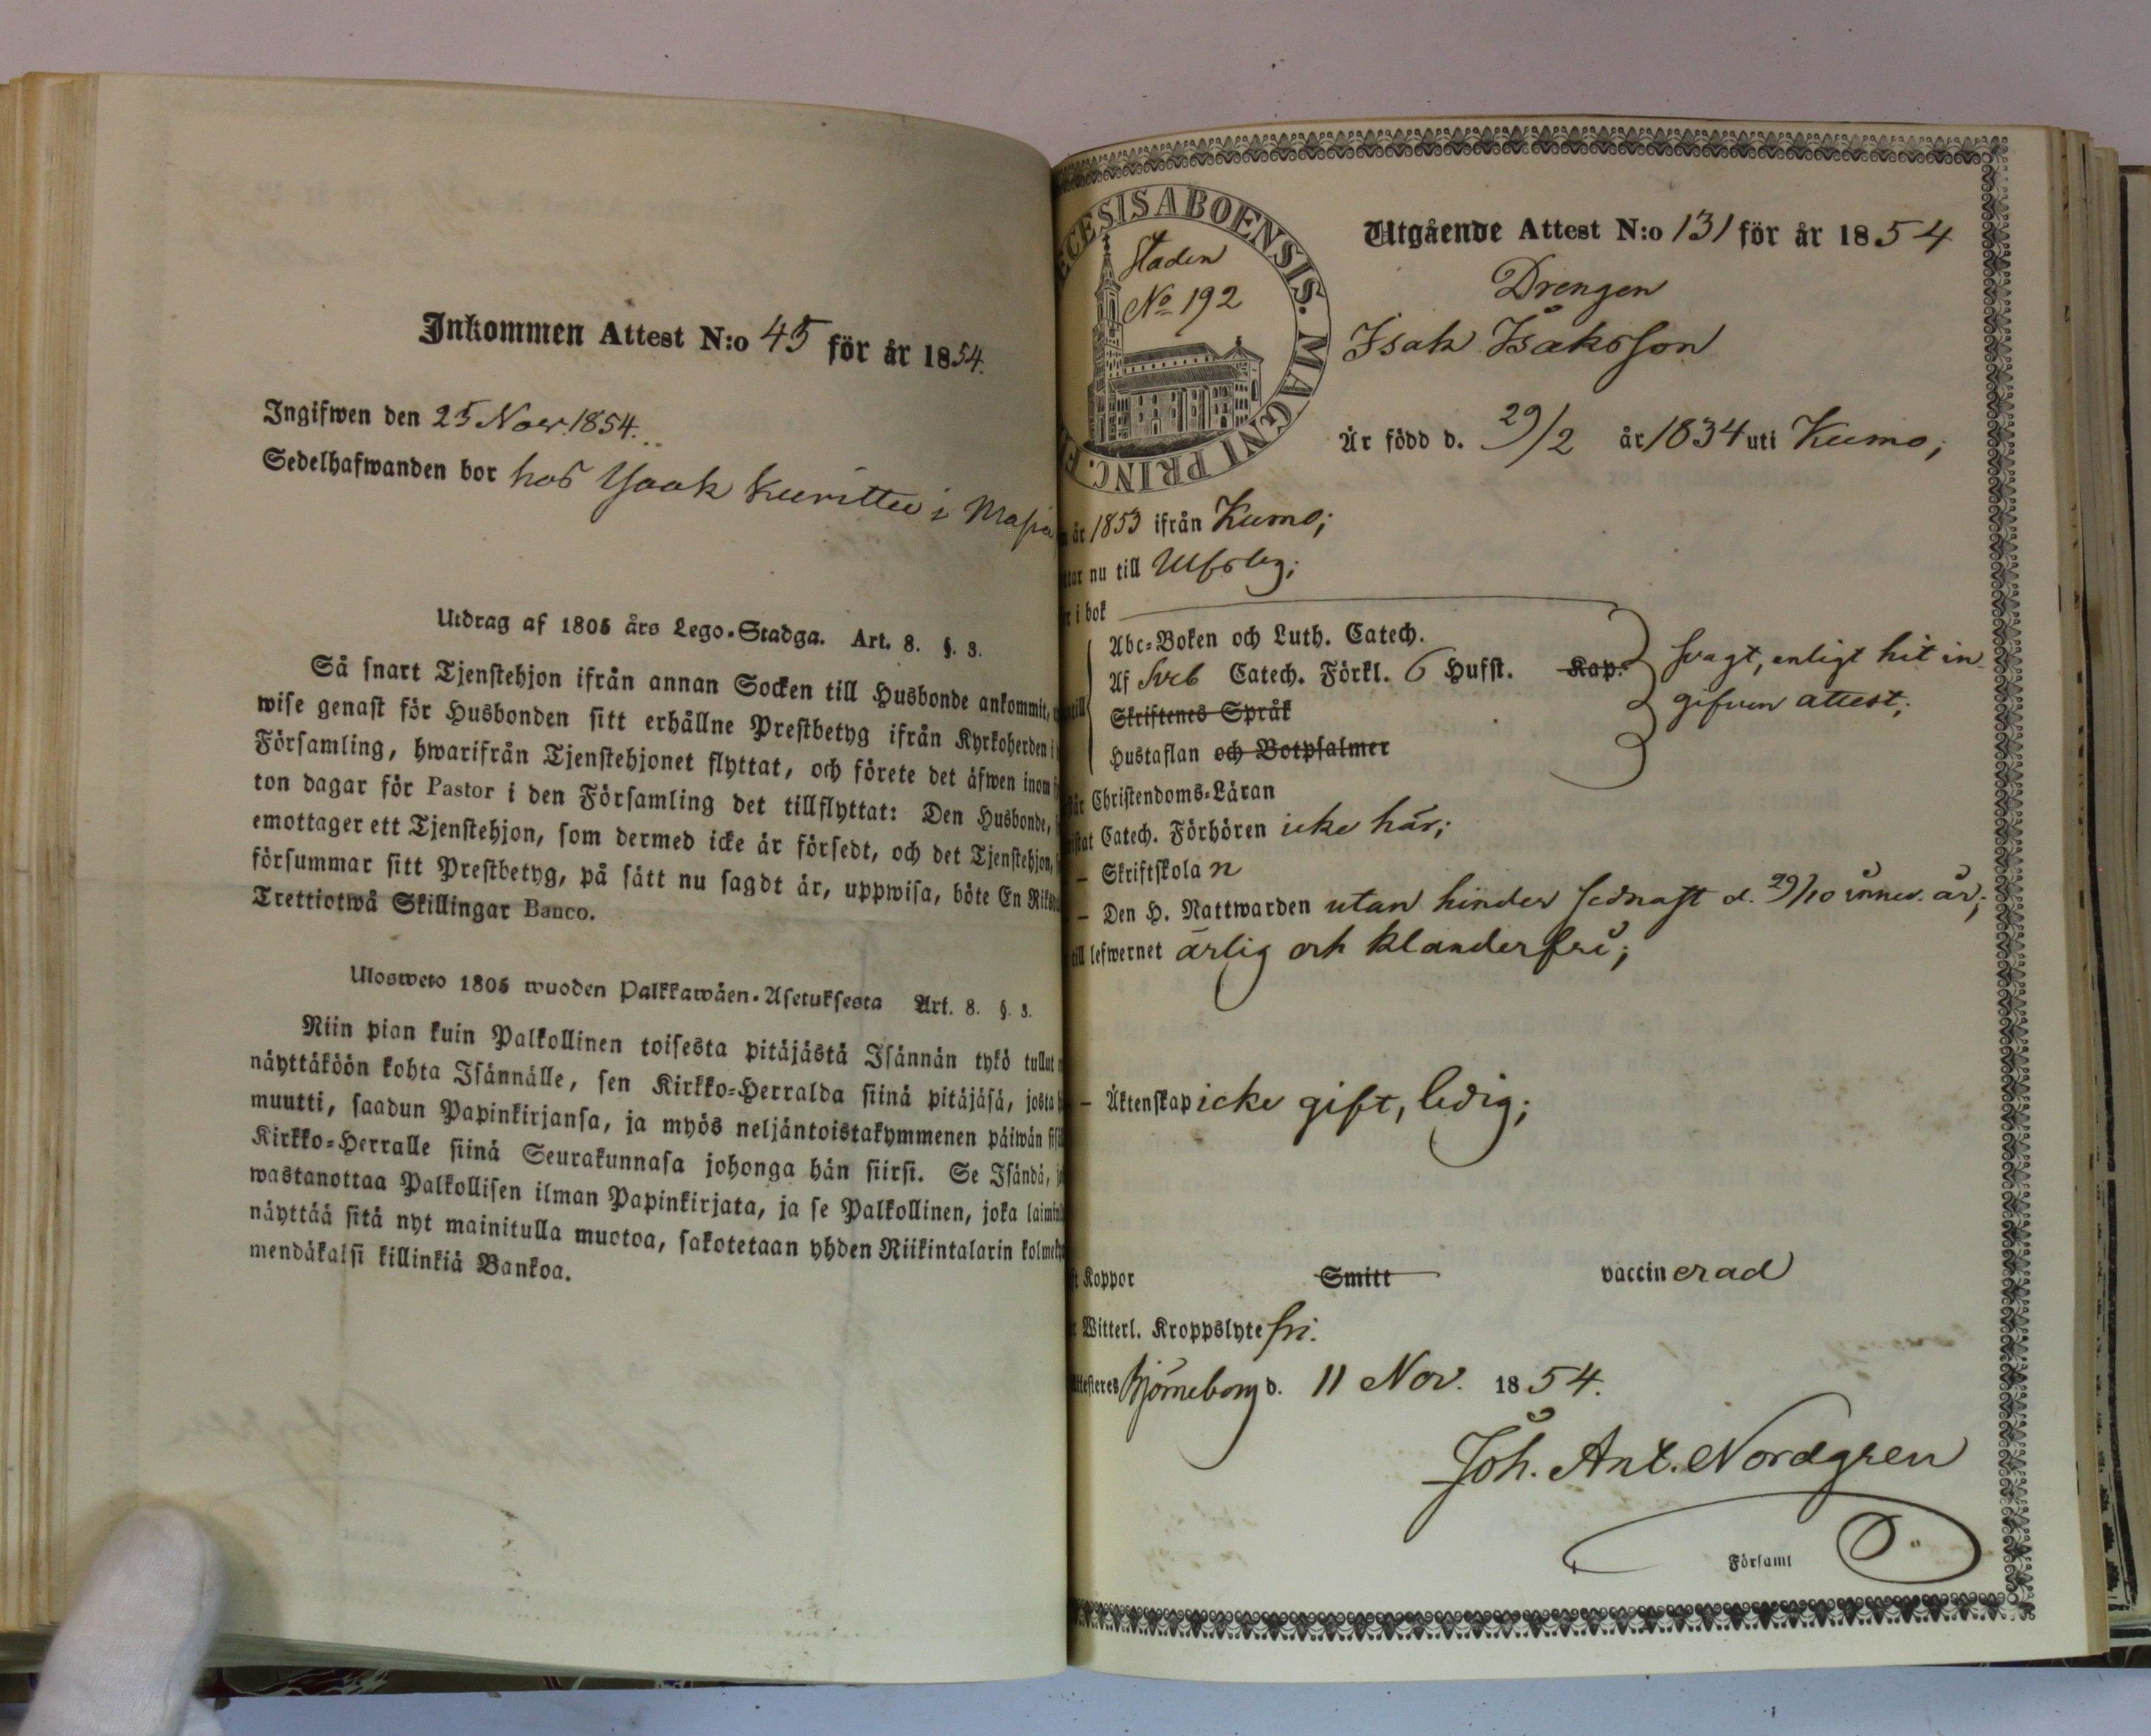 Inkommen Attest N:o 45 för år 1854.
Ingifwen den 25 Nov. 1854.
Sedelhafwanden bor hos i
Utdrag af 1805 års Lego-Stadga. Art. 8. §. 3.
Så snart Tjenstehjon ifrån annan Socken till Husbonde ankommit,
wise genast för Husbonden sitt erhållne Prestbetyg ifrån Kyrkoherden i
Församling, hwarifrån Tjenstehjonet flyttat, och förete det äfwen inom
ton dagar för Pastor i den Församling det tillflyttat: Den Husbonde,
emottager ett Tjenstehjon, som dermed icke är försedt, och det Tjenstehjon,
försummar sitt Prestbetyg, på sätt nu sagdt är, uppwisa, böte En
Trettiotwå Skillingar Banco.
Ulosweto 1805 wuoden Palkkawäen-Asetuksesta Art. 8. §. 3.
Niin pian kuin Palkollinen toisesta pitäjästä Isännän tykö tullut
näyttäköön kohta Isännälle, sen Kirkko-Herralda siinä pitäjäsä, josta
muutti, saadun Papinkirjansa, ja myös neljäntoistakymmenen päiwän
Kirkko-Herralle siinä Seurakunnasa johonga hän siirsi. Se Isändä,
wastanottaa Palkollisen ilman Papinkirjata, ja se Palkollinen, joka
näyttää sitä nyt mainitulla muotoa, sakotetaan yhden Riikintalarin
mendäkaksi killinkiä Bankoa.
ECESIS ABOENSIS. MAGNI PRINC. F
Staden
No 192
Utgående Attest N:o 131 för år 1854
Drengen
Isak Isaksson
Är född d. 29/2 år 1834 uti Kumo;
år 1853 ifrån Kumo;
tar nu till Ulfsby;
i bok
Abc-Boken och Luth. Catech.
Af Sveb Catech. Förkl. 6 Hufst. Kap. svagt, enligt hit in-
Skriftenes Språk gifven attest;
Hustaflan och Botpsalmer
Christendoms-Läran
stat Catech. Förhören icke här;
– Skriftskolan
– Den H. Nattwarden utan hinder sednast d. 29/10 innev. år;
till lefwernet ärlig och klanderfri;
– Äktenskap icke gift, ledig;
t Koppor Smitt vaccinerad
Witterl. Kroppslyte fri.
Attesteres Björneborg d. 11 Nov. 1854.
Joh. Ant. Nordgren
Församl